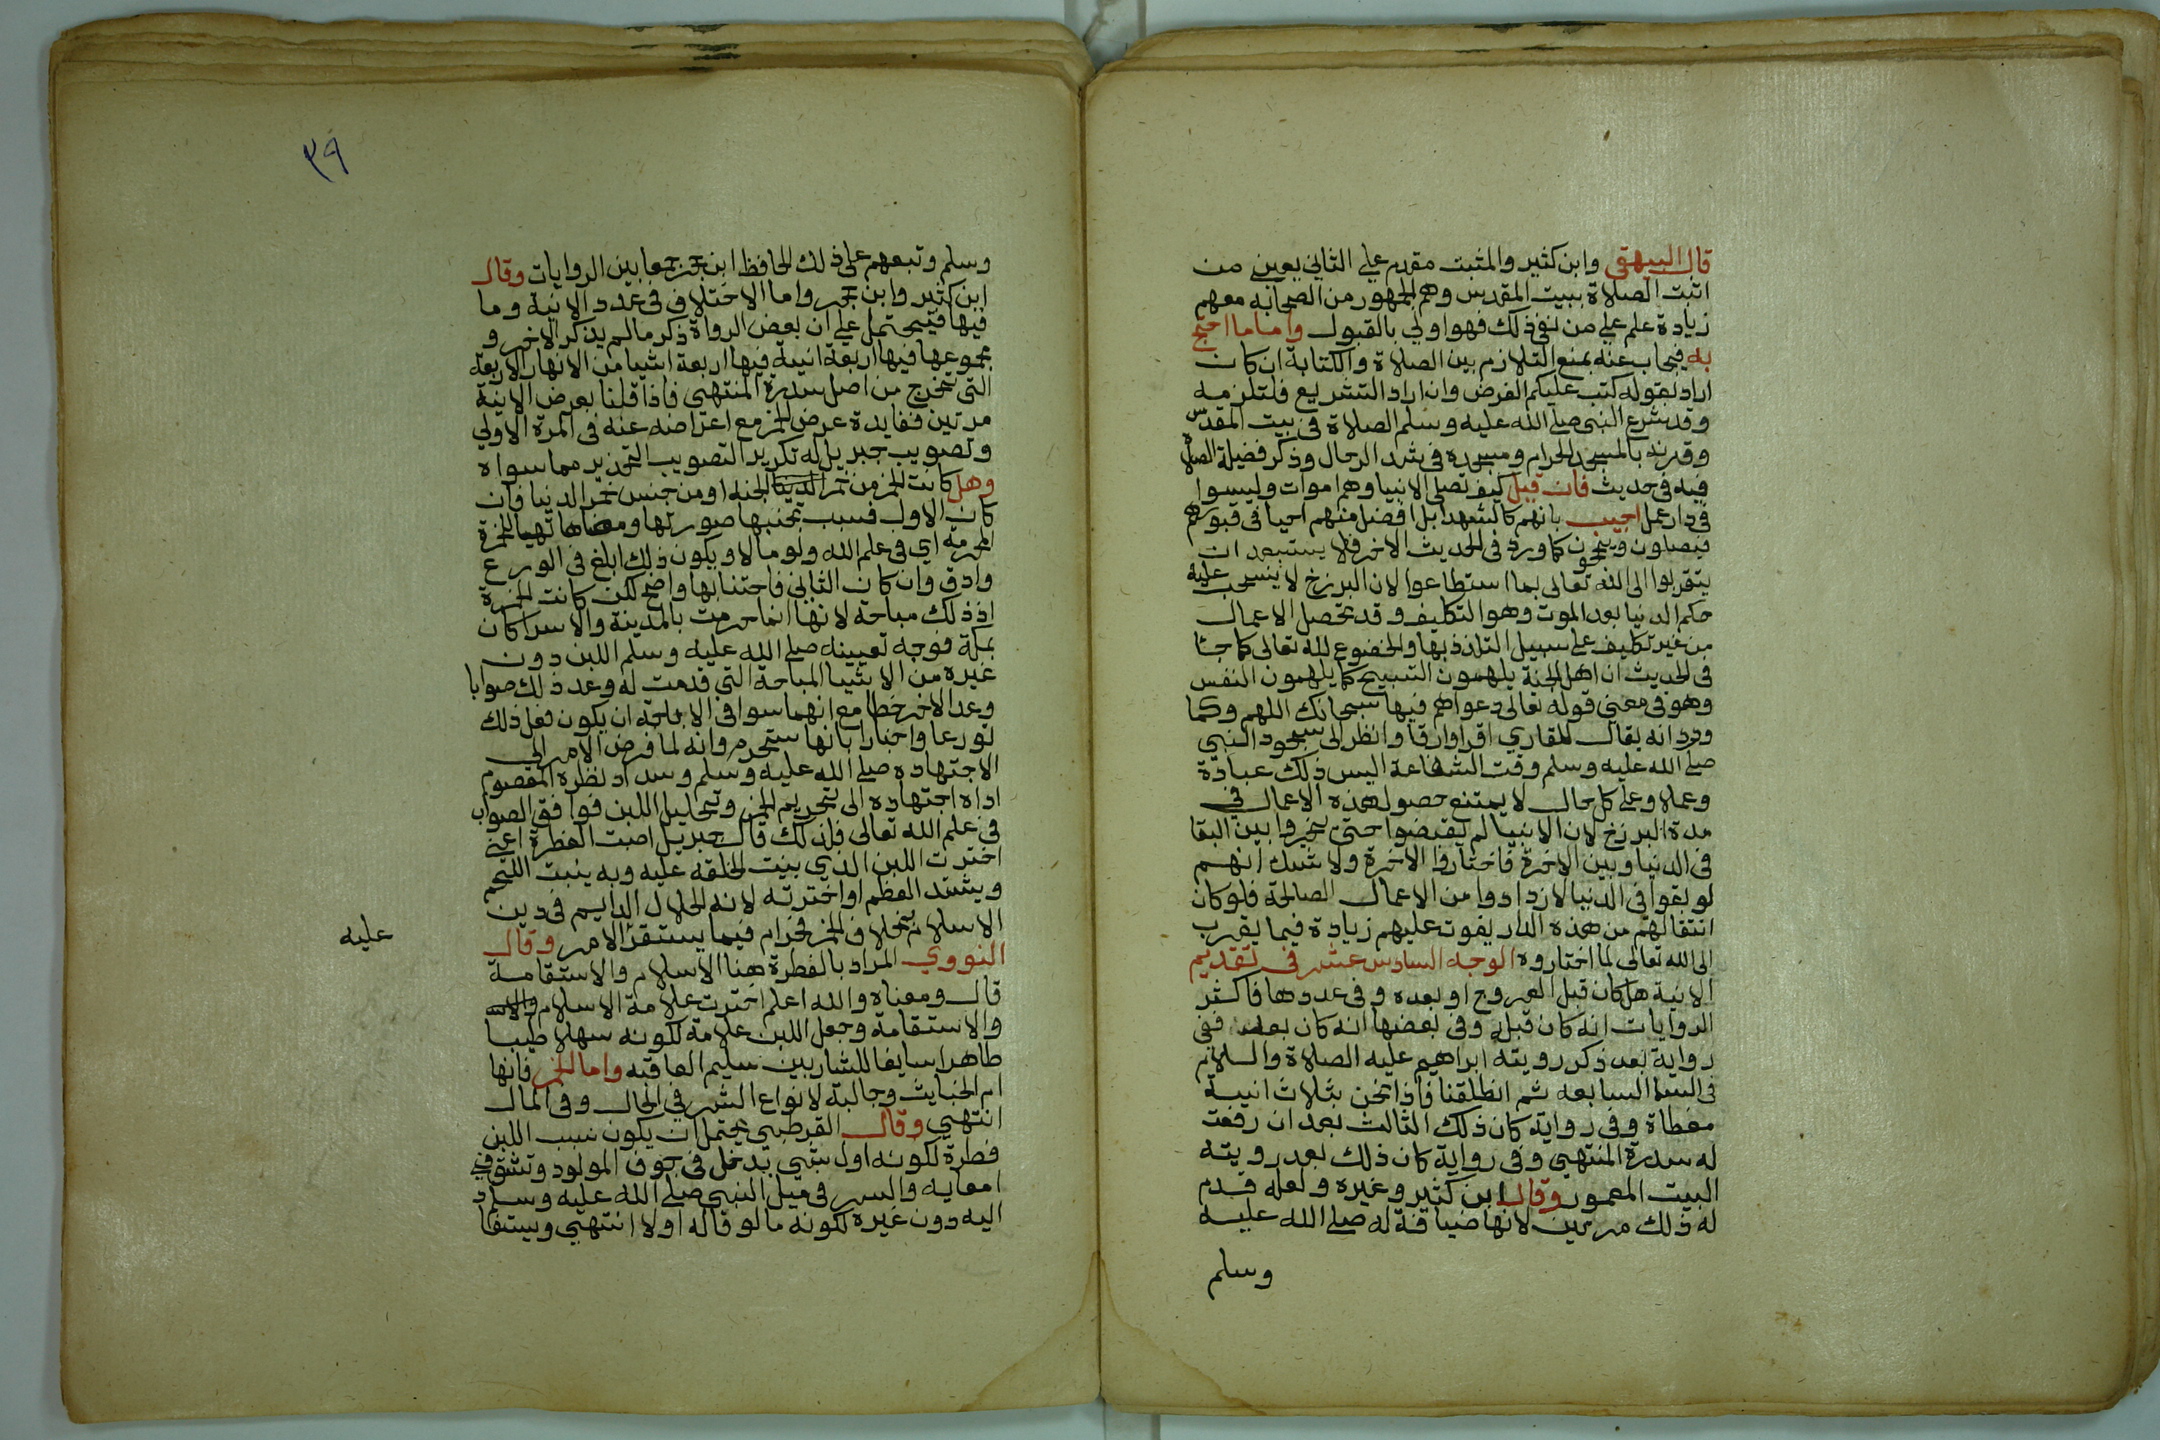 قال البيهقي وابن كثير والمثبت مقدم على النافي يعني من
اثبت الصلاة ببيت المقدس وهم الجمهور من الصحابه معهم
زيادة علم على من نفى ذلك فهو اولى بالقبول واما ما احتج
به فيجاب عنه بمنع التلازم بين الصلاة والكتابة ان كان
اراد بقوله كتب عليكم الفرض وان اراد التشريع فلتلزمه
وقد شرع النبي صلى الله عليه وسلم الصلاة في بيت المقدس
وقرنه بالمسجد الحرام ومسجده في شد الرحال وذكر فضيلة الصلاة
فيه في حديث فان قيل كيف تصلي الانبيا وهم اموات وليسوا
في دار عمل اجيب بانهم كالشهدا بل افضل منهم احيا في قبورهم
فيصلون ويحجون كما ورد في الحديث الاخر فلا يستبعد ان
يتقربوا الى الله تعالى بما استطاعوا لان البرزخ لا ينسحب عليه
حكم الدنيا بعد الموت وهو التكليف وقد تحصل الاعمال
من غير تكليف على سبيل التلذذ بها والخضوع لله تعالى كما جا
في الحديث ان اهل الجنة يلهمون التسبيح كما يلهمون النفس
وهو في معنى قوله تعالى دعواهم فيها سبحانك اللهم وكما
ورد انه يقال للقاري اقرا وارقا وانظر الى سجود النبي
صلى الله عليه وسلم وقت الشفاعة اليس ذلك عبادة
وعملا وعلى كل حال لا يمتنع حصول هذه الاعمال في
مدة البرزخ لان الانبيا لم يقبضوا حتى خيروا بين البقا
في الدنيا وبين الاخرة فاختاروا الاخرة ولا شك انهم
لو بقوا في الدنيا لازدادوا من الاعمال الصالحة فلو كان
انتقالهم من هذه الدار يفوت عليهم زيادة فيما يقرب
الى الله تعالى لما اختاروه الوجه السادس عشر في تقديم
الانية هل كان قبل العروج او بعده وفي عددها فاكثر
الروايات انه كان قبله وفي بعضها انه كان بعده ففي
رواية بعد ذكر رويته ابراهيم عليه الصلاة والسلام
في السما السابعه ثم انطلقنا فاذا نحن بثلاث انية
مغطاة وفي رواية كان ذلك الثالث بعد ان رفعت
له سدرة المنتهى وفي رواية كان ذلك بعد رويته
البيت المعمور وقال ابن كثير وغيره ولعله قدم
له ذلك مرتين لانها ضيافة له صلى الله عليه
وسلم
٣٩
وسلم وتبعهم على ذلك الحافظ ابن حجر جمعا بين الروايات وقال
ابن كثير وابن حجر واما الاختلاف في عدد الانية وما
فيها فيحتمل على ان بعض الرواة ذكر مالم يذكر الاخر و
مجموعها فيها اربعة انية فيها اربعة اشيا من الانهار الاربعة
التي تخرج من اصل سدرة المنتهى فاذا قلنا بعرض الانية
مرتين ففايدة عرض الخمر مع اعراضه عنه في المرة الاولى
وتصويب جبريل له تكرير التصويب التحذير مما سواه
وهل كانت الخمر من خمر الدنيا الجنة او من جنس خمر الدنيا فان
كان الاول فسبب تجنبها صورتها ومضاهاتهيا الخمرة
المحرمه اي في علم الله ولو مالا ويكون ذلك ابلغ في الورع
وادق وان كان الثاني فاجتنابها واضح لكن كانت الخمرة
اذ ذلك مباحة لانها انما حرمت بالمدينة والاسرا كان
بمكة فوجه تعيينه صلى الله عليه وسلم اللبن دون
غيره من الاشيا المباحة التي قدمت له وعد ذلك صوابا
وعد الاخر خطا مع انهما سوا في الاباحة ان يكون فعل ذلك
تورعا واخبارا بانها ستحرم وانه لما فرض الامر الى
الاجتهاده صلى الله عليه وسلم وسداد نظره المعصوم
اداه اجتهاده الى تحريم الخمر وتحليل اللبن فوافق الصواب
في علم الله تعالى فلذلك قال جبريل اصبت الفطرة اعني
اخترت اللبن الذي بنيت الخلقه عليه وبه ينبت اللحم
ويشتد العظم او اخترته لانه الحلال الدايم في دين
الاسلام بخلاف الخمر فحرام فيما يستقر الامر وقال
عليه
النووي المراد بالفطرة هنا الاسلام والاستقامة
قال ومعناه والله اعلم اخترت علامة الاسلام والاسـ
والاستقامة وجعل اللبن علامة لكونه سهلا طيبا
طاهرا سايغا للشاربين سليم العاقبه واما الخمر فانها
ام الخبايث وجالبة لانواع الشر في الحال وفي المال
انتهى وقال القرطبي يحتمل ان يكون سبب اللبن
فطرة لكونه اول شي يدخل في جوف المولود وتشق في
امعايه والسر في ميل النبي صلى الله عليه وسلم
اليه دون غيره لكونه مالوفا له اولا انتهى ويستفا